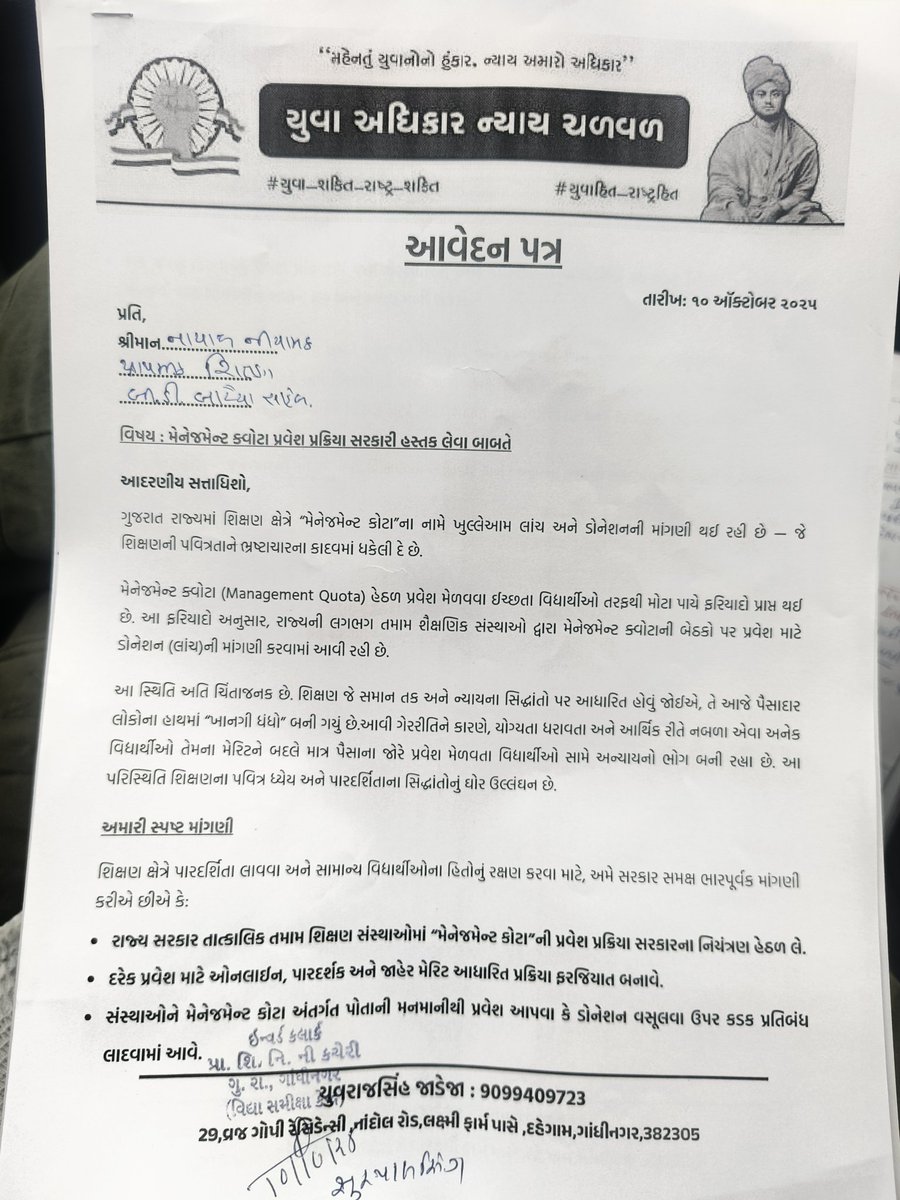 “મહેનતું યુવાનોનો હુંકાર, ન્યાય અમારો અધિકાર”
યુવા અધિકાર ન્યાય ચળવળ
#યુવા_શક્તિ_રાષ્ટ્ર_શક્તિ #યુવાહિત_રાષ્ટ્રહિત
આવેદન પત્ર
તારીખ: ૧૦ ઑક્ટોબર ૨૦૨૫
પ્રતિ,
શ્રીમાન નાયાબ નીયામક
પ્રાથમિક શિક્ષા
સાહેબ.
વિષય : મેનેજમેન્ટ ક્વોટા પ્રવેશ પ્રક્રિયા સરકારી હસ્તક લેવા બાબતે
આદરણીય સત્તાધિશો,
ગુજરાત રાજ્યમાં શિક્ષણ ક્ષેત્રે “મેનેજમેન્ટ કોટા”ના નામે ખુલ્લેઆમ લાંચ અને ડોનેશનની માંગણી થઈ રહી છે — જે
શિક્ષણની પવિત્રતાને ભ્રષ્ટાચારના કાદવમાં ધકેલી દે છે.
મેનેજમેન્ટ ક્વોટા (Management Quota) હેઠળ પ્રવેશ મેળવવા ઈચ્છતા વિદ્યાર્થીઓ તરફથી મોટા પાયે ફરિયાદો પ્રાપ્ત થઈ
છે. આ ફરિયાદો અનુસાર, રાજ્યની લગભગ તમામ શૈક્ષણિક સંસ્થાઓ દ્વારા મેનેજમેન્ટ ક્વોટાની બેઠકો પર પ્રવેશ માટે
ડોનેશન (લાંચ)ની માંગણી કરવામાં આવી રહી છે.
આ સ્થિતિ અતિ ચિંતાજનક છે. શિક્ષણ જે સમાન તક અને ન્યાયના સિદ્ધાંતો પર આધારિત હોવું જોઈએ, તે આજે પૈસાદાર
લોકોના હાથમાં “ખાનગી ધંધો” બની ગયું છે.આવી ગેરરીતિને કારણે, યોગ્યતા ધરાવતા અને આર્થિક રીતે નબળા એવા અનેક
વિદ્યાર્થીઓ તેમના મેરિટને બદલે માત્ર પૈસાના જોરે પ્રવેશ મેળવતા વિદ્યાર્થીઓ સામે અન્યાયનો ભોગ બની રહ્યા છે. આ
પરિસ્થિતિ શિક્ષણના પવિત્ર ધ્યેય અને પારદર્શિતાના સિદ્ધાંતોનું ઘોર ઉલ્લંઘન છે.
અમારી સ્પષ્ટ માંગણી
શિક્ષણ ક્ષેત્રે પારદર્શિતા લાવવા અને સામાન્ય વિદ્યાર્થીઓના હિતોનું રક્ષણ કરવા માટે, અમે સરકાર સમક્ષ ભારપૂર્વક માંગણી
કરીએ છીએ કે:
• રાજ્ય સરકાર તાત્કાલિક તમામ શિક્ષણ સંસ્થાઓમાં “મેનેજમેન્ટ કોટા”ની પ્રવેશ પ્રક્રિયા સરકારના નિયંત્રણ હેઠળ લે.
• દરેક પ્રવેશ માટે ઓનલાઈન, પારદર્શક અને જાહેર મેરિટ આધારિત પ્રક્રિયા ફરજિયાત બનાવે.
• સંસ્થાઓને મેનેજમેન્ટ કોટા અંતર્ગત પોતાની મનમાનીથી પ્રવેશ આપવા કે ડોનેશન વસૂલવા ઉપર કડક પ્રતિબંધ
લાદવામાં આવે.
ઇન્વર્ડ કલાર્ક
પ્રા. શિ. નિ. ની કચેરી
ગુ. રા., ગાંધીનગર
(વિદ્યા સમીક્ષા
યુવરાજસિંહ જાડેજા : 9099409723
29,વ્રજ ગોપી રેસિડેન્સી ,નાંદોલ રોડ,લક્ષ્મી ફાર્મ પાસે ,દહેગામ,ગાંધીનગર,382305